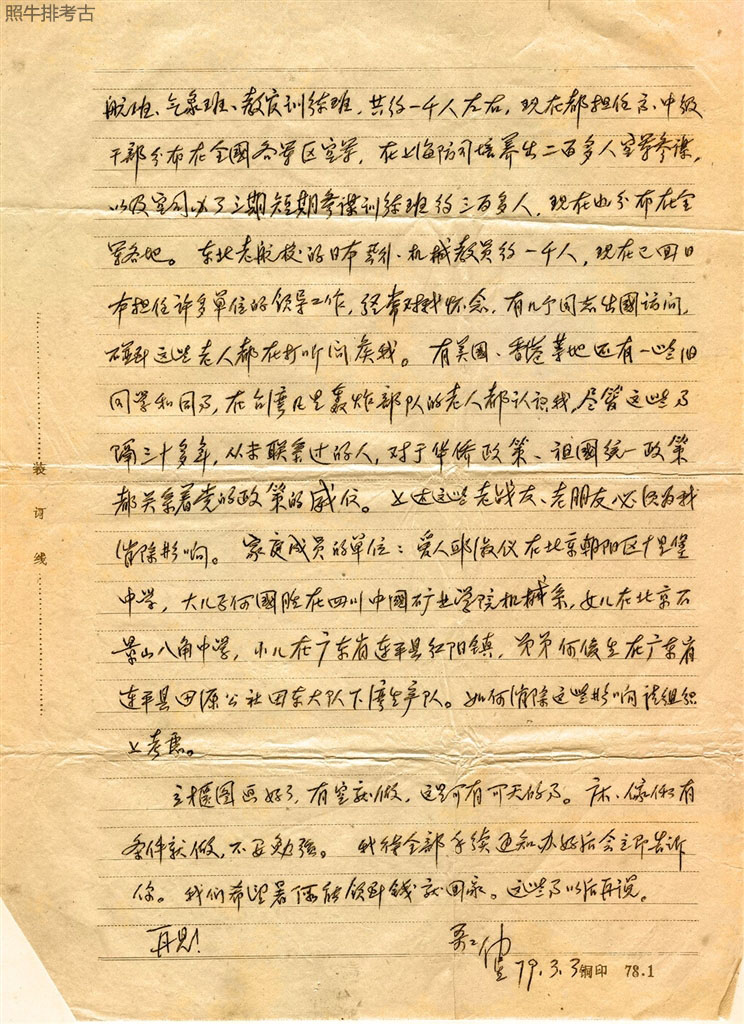 照牛排考古
航班、气象班、教官训练班,共约一千人左右,现在都担任高、中级
干部分布在全國各軍区空軍,在上海防司培养出二百多人空軍参谋,
以及空司办了三期短期参谋训练班约三百多人,现在也分布在全
軍各地。东北老航校的日本飞行、机械教员约一千人,现在已回日
本担任许多单位的领导工作,经常对我怀念,有几个同志出國访问,
碰到这些老人都在打听问候我。有美国、香港等地还有一些旧
同学和同事,在台湾凡是轰炸部队的老人都认识我,尽管这些事
隔三十多年,从未联系过的人,对于华侨政策、祖國统一政策
都关系着党的政策的威信。上述这些老战友、老朋友必须为我
消除影响。家庭成员的单位:爱人邱淑仪在北京朝阳区十里堡
中学,大儿子何國胜在四川中國矿业学院机械系,女儿在北京石
景山八角中学,小儿在广东省连平县红阳镇,弟弟何俊生在广东省
连平县田源公社田东大队下湾生产队。如何消除这些影响请组织
上考虑。
立柜图画好了,有空就做,这是可有可无的事。床、傢俱有
条件就做,不要勉强。我待全部手续通知办好后会立即告诉
你。我们希望署保能领到钱就回家。这些事以后再说。
再见!
79.3.3
铜印 78.1
装
订
线